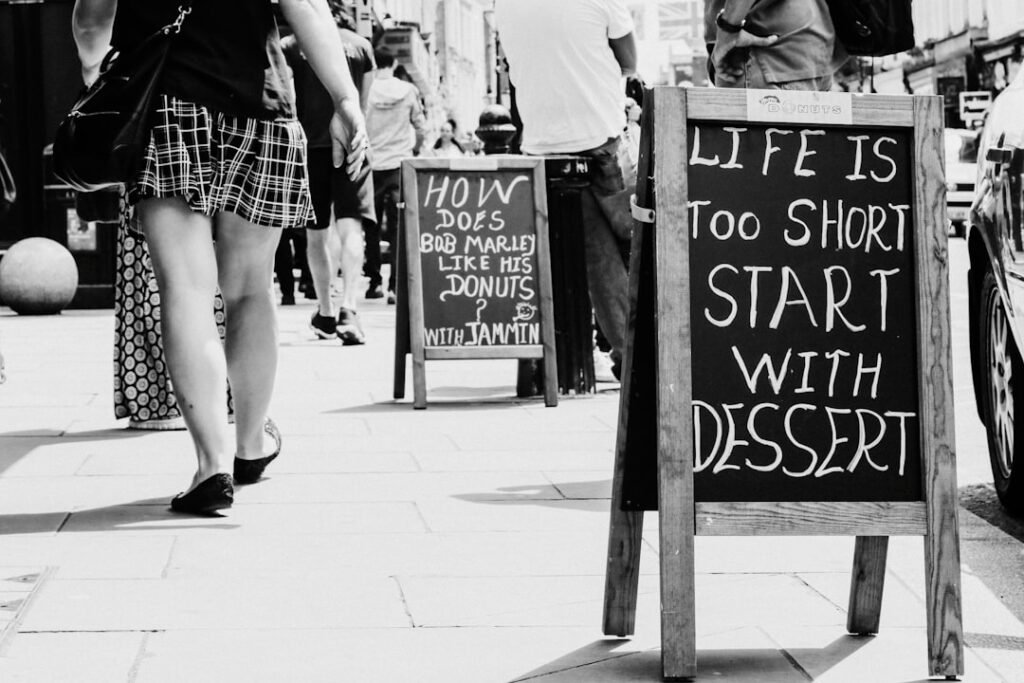 HOW
DOES
BOB MARLEY
LIKE HIS
DONUTS
?
WITH JAMMIN
DONUTS
LIFE IS
TOO SHORT
START
WITH
DESSERT